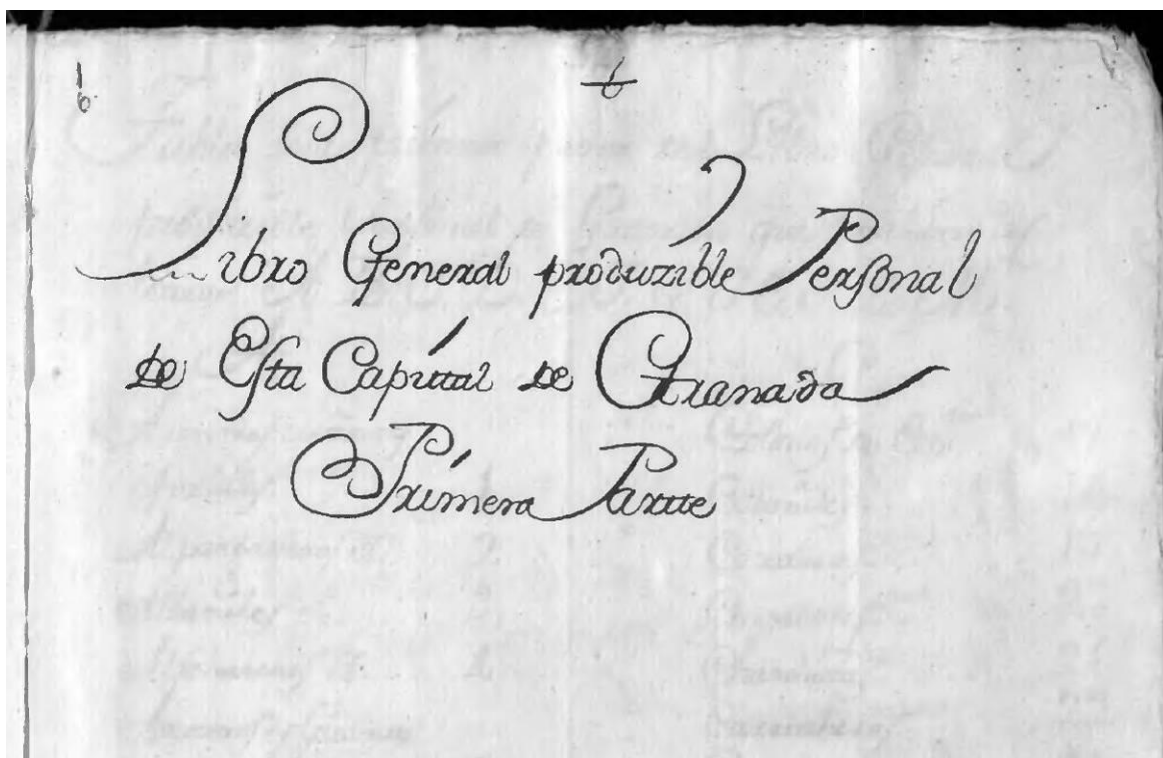 Libro General produzible Personal
de Esta Capital de Granada
Primera Partte